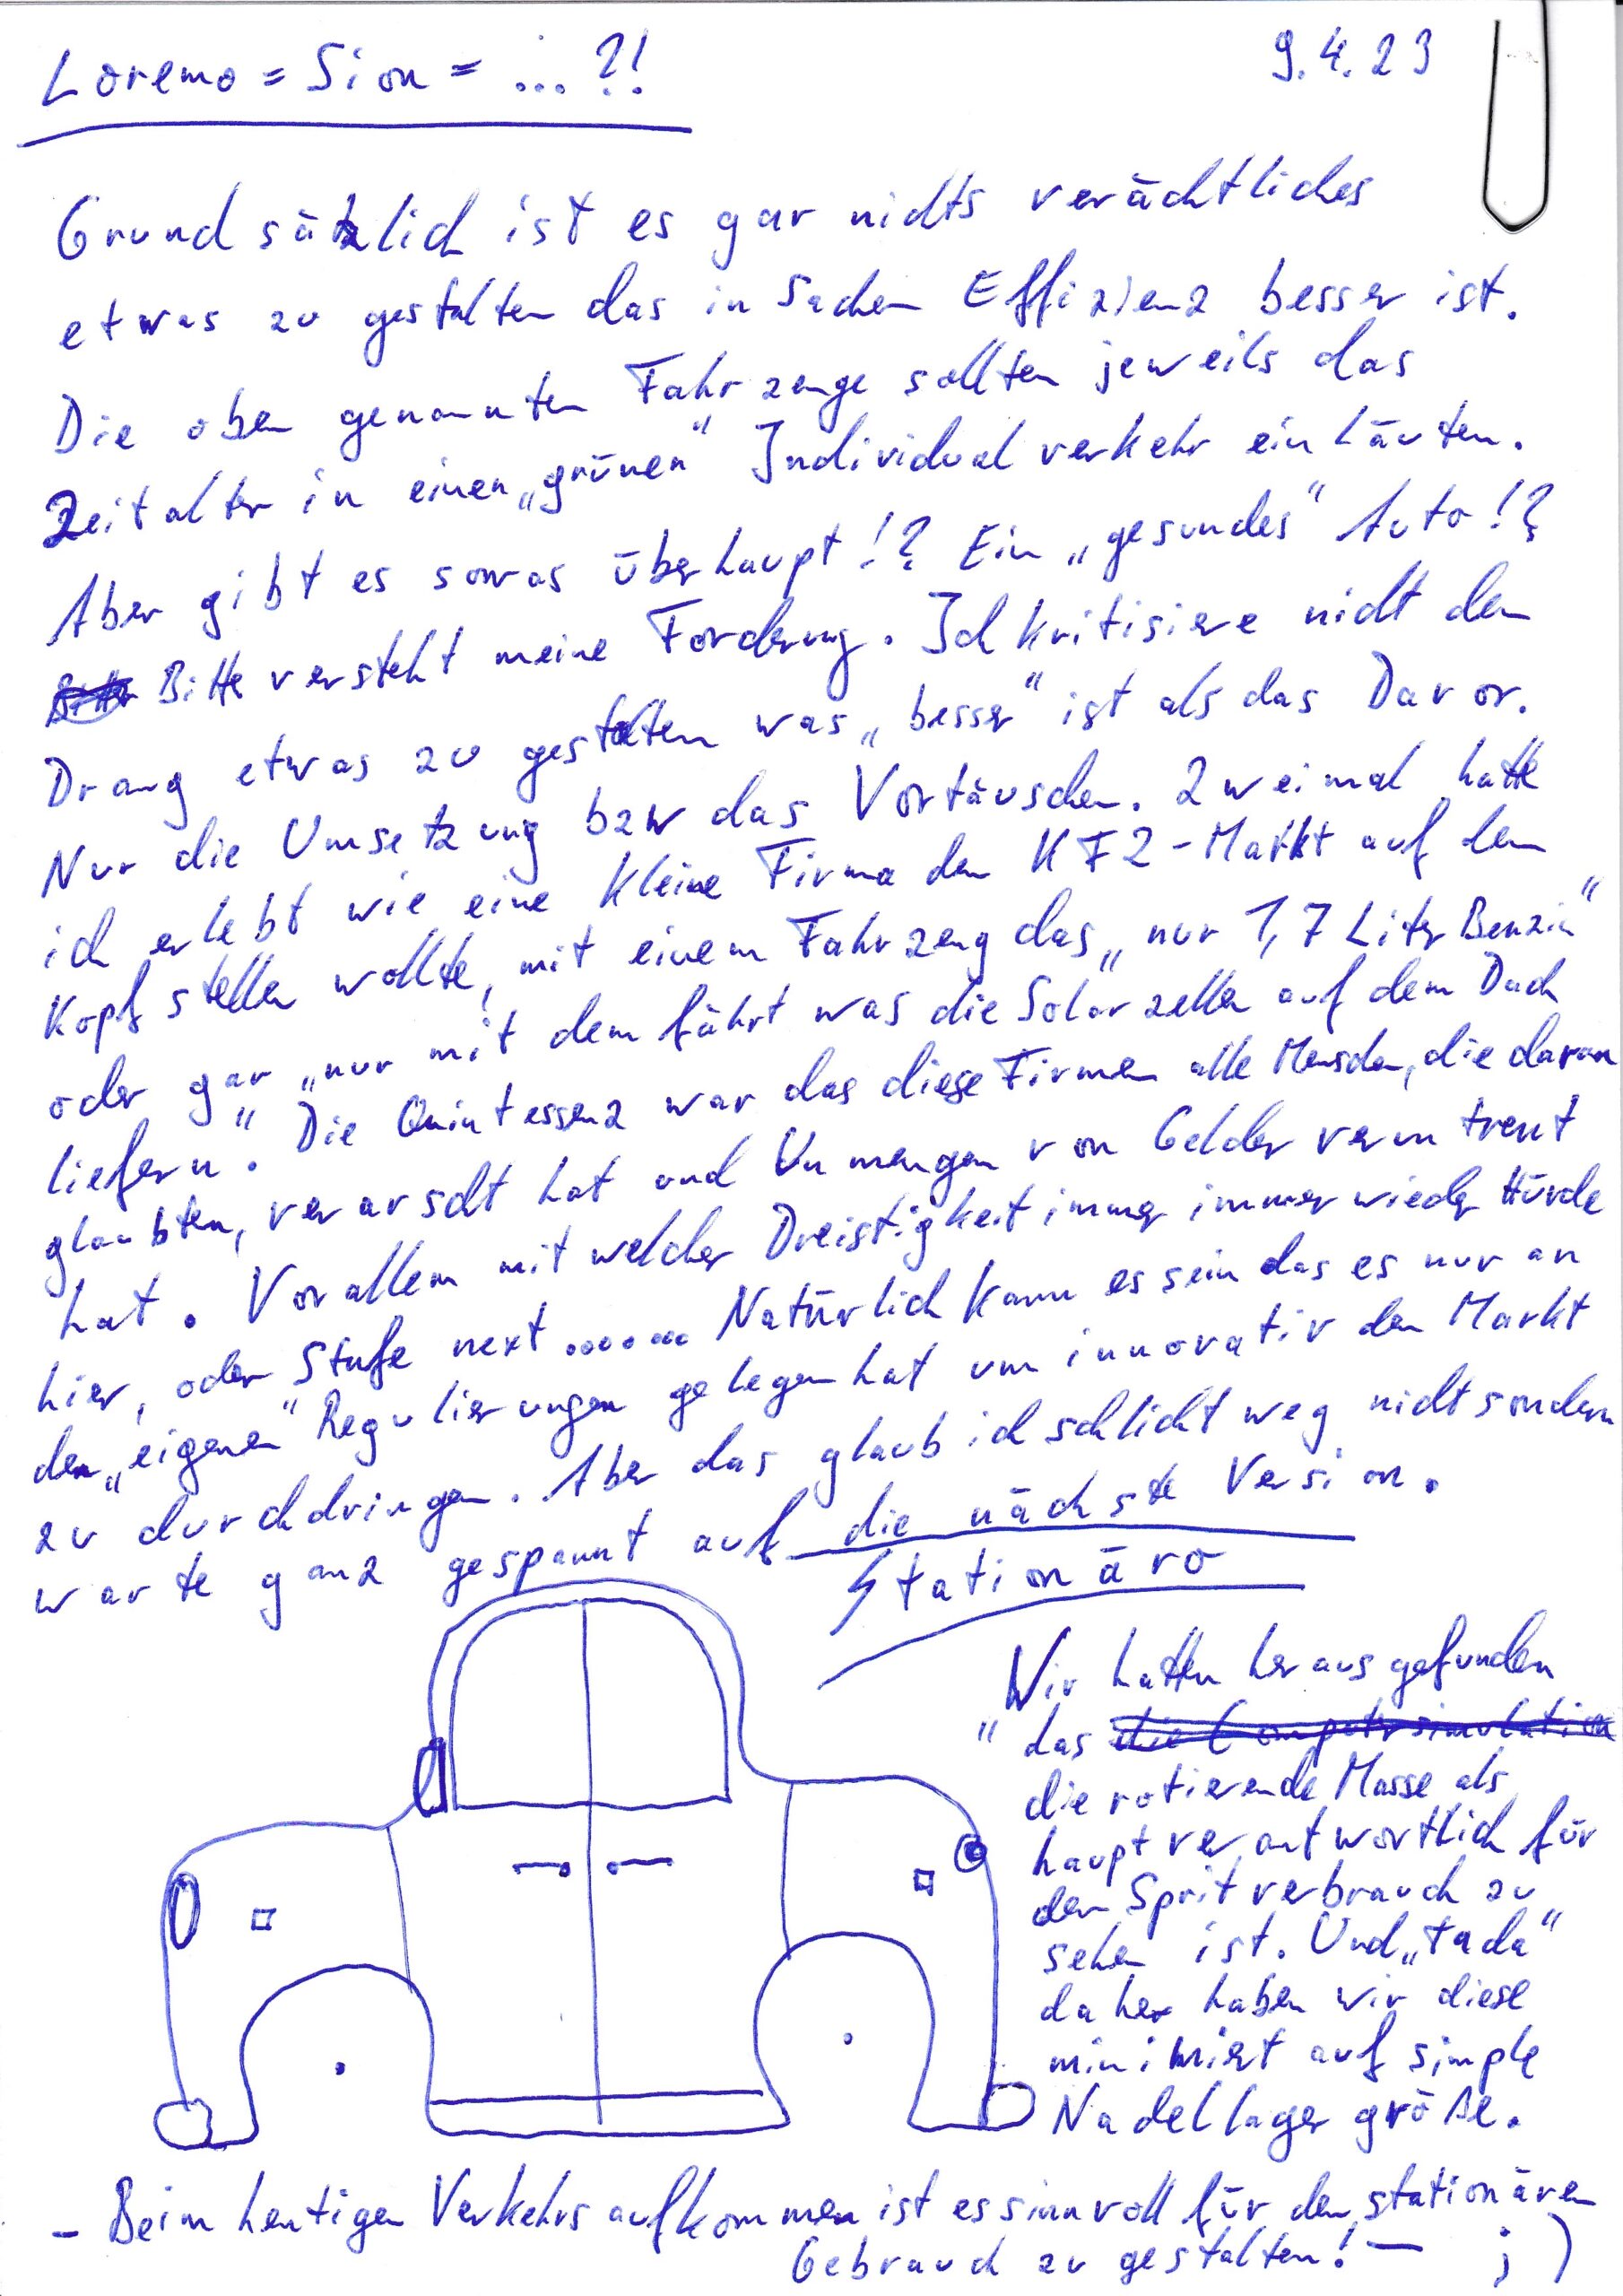 Loremo = Sion = ... ?!
9.4.23
Grundsätzlich ist es gar nichts verächtliches
etwas zu gestalten das in Sachen Effizienz besser ist.
Die oben genannten Fahrzeuge sollten jeweils das
Zeitalter in einen „grünen" Individualverkehr einläuten.
Aber gibt es sowas überhaupt!? Ein „gesundes" Auto!?
Bitte versteht meine Forderung. Ich kritisiere nicht den
Drang etwas zu gestalten was „besser" ist als das Davor.
Nur die Umsetzung bzw das Vortäuschen. Zweimal hatte
ich erlebt wie eine kleine Firma den KFZ-Markt auf den
Kopf stellen wollte, mit einem Fahrzeug das „nur 1,7 Liter Benzin"
oder gar „nur mit dem fährt was die Solarzellen auf dem Dach
liefern". Die Quintessenz war das diese Firmen alle Menschen, die daran
glaubten, verarscht hat und Unmengen von Gelder veruntreut
hat. Vorallem mit welcher Dreistigkeit immer immer wieder Hürde
hier, oder Stufe next ......... Natürlich kann es sein das es nur an
den „eigenen" Regulierungen gelegen hat um innovativ den Markt
zu durchdringen. Aber das glaub ich schlicht weg nicht sondern
warte ganz gespannt auf die nächste Version.
Stationäro
Wir hatten herausgefunden
" das die Computersimulation
die rotierende Masse als
hauptverantwortlich für
den Spritverbrauch zu
sehen ist. Und „tada"
daher haben wir diese
minimiert auf simple
Nadellager größe.
- Beim heutigen Verkehrsaufkommen ist es sinnvoll für den stationären
Gebrauch zu gestalten! - ;)